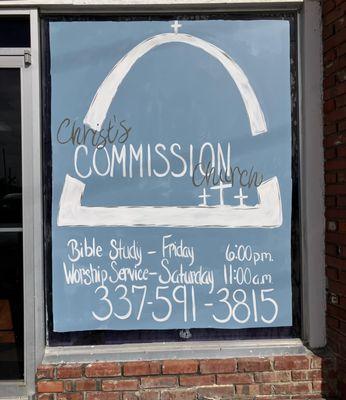 Christ's
COMMISSION Church
Bible Study - Friday 6:00 p.m.
Worship Service - Saturday 11:00 a.m
337-591-3815